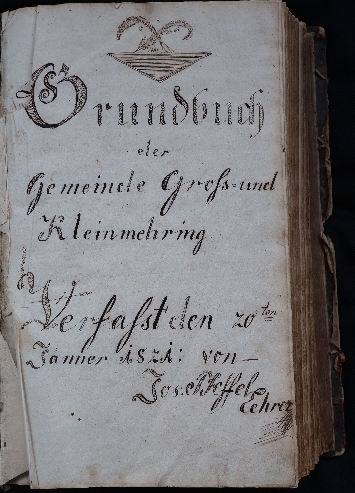 Grundbuch
der
Gemeinde Gross- und
Kleinmehring.
Verfasst den 20ten
Jänner 1821: von –
Jos. Steffel
Lehrer